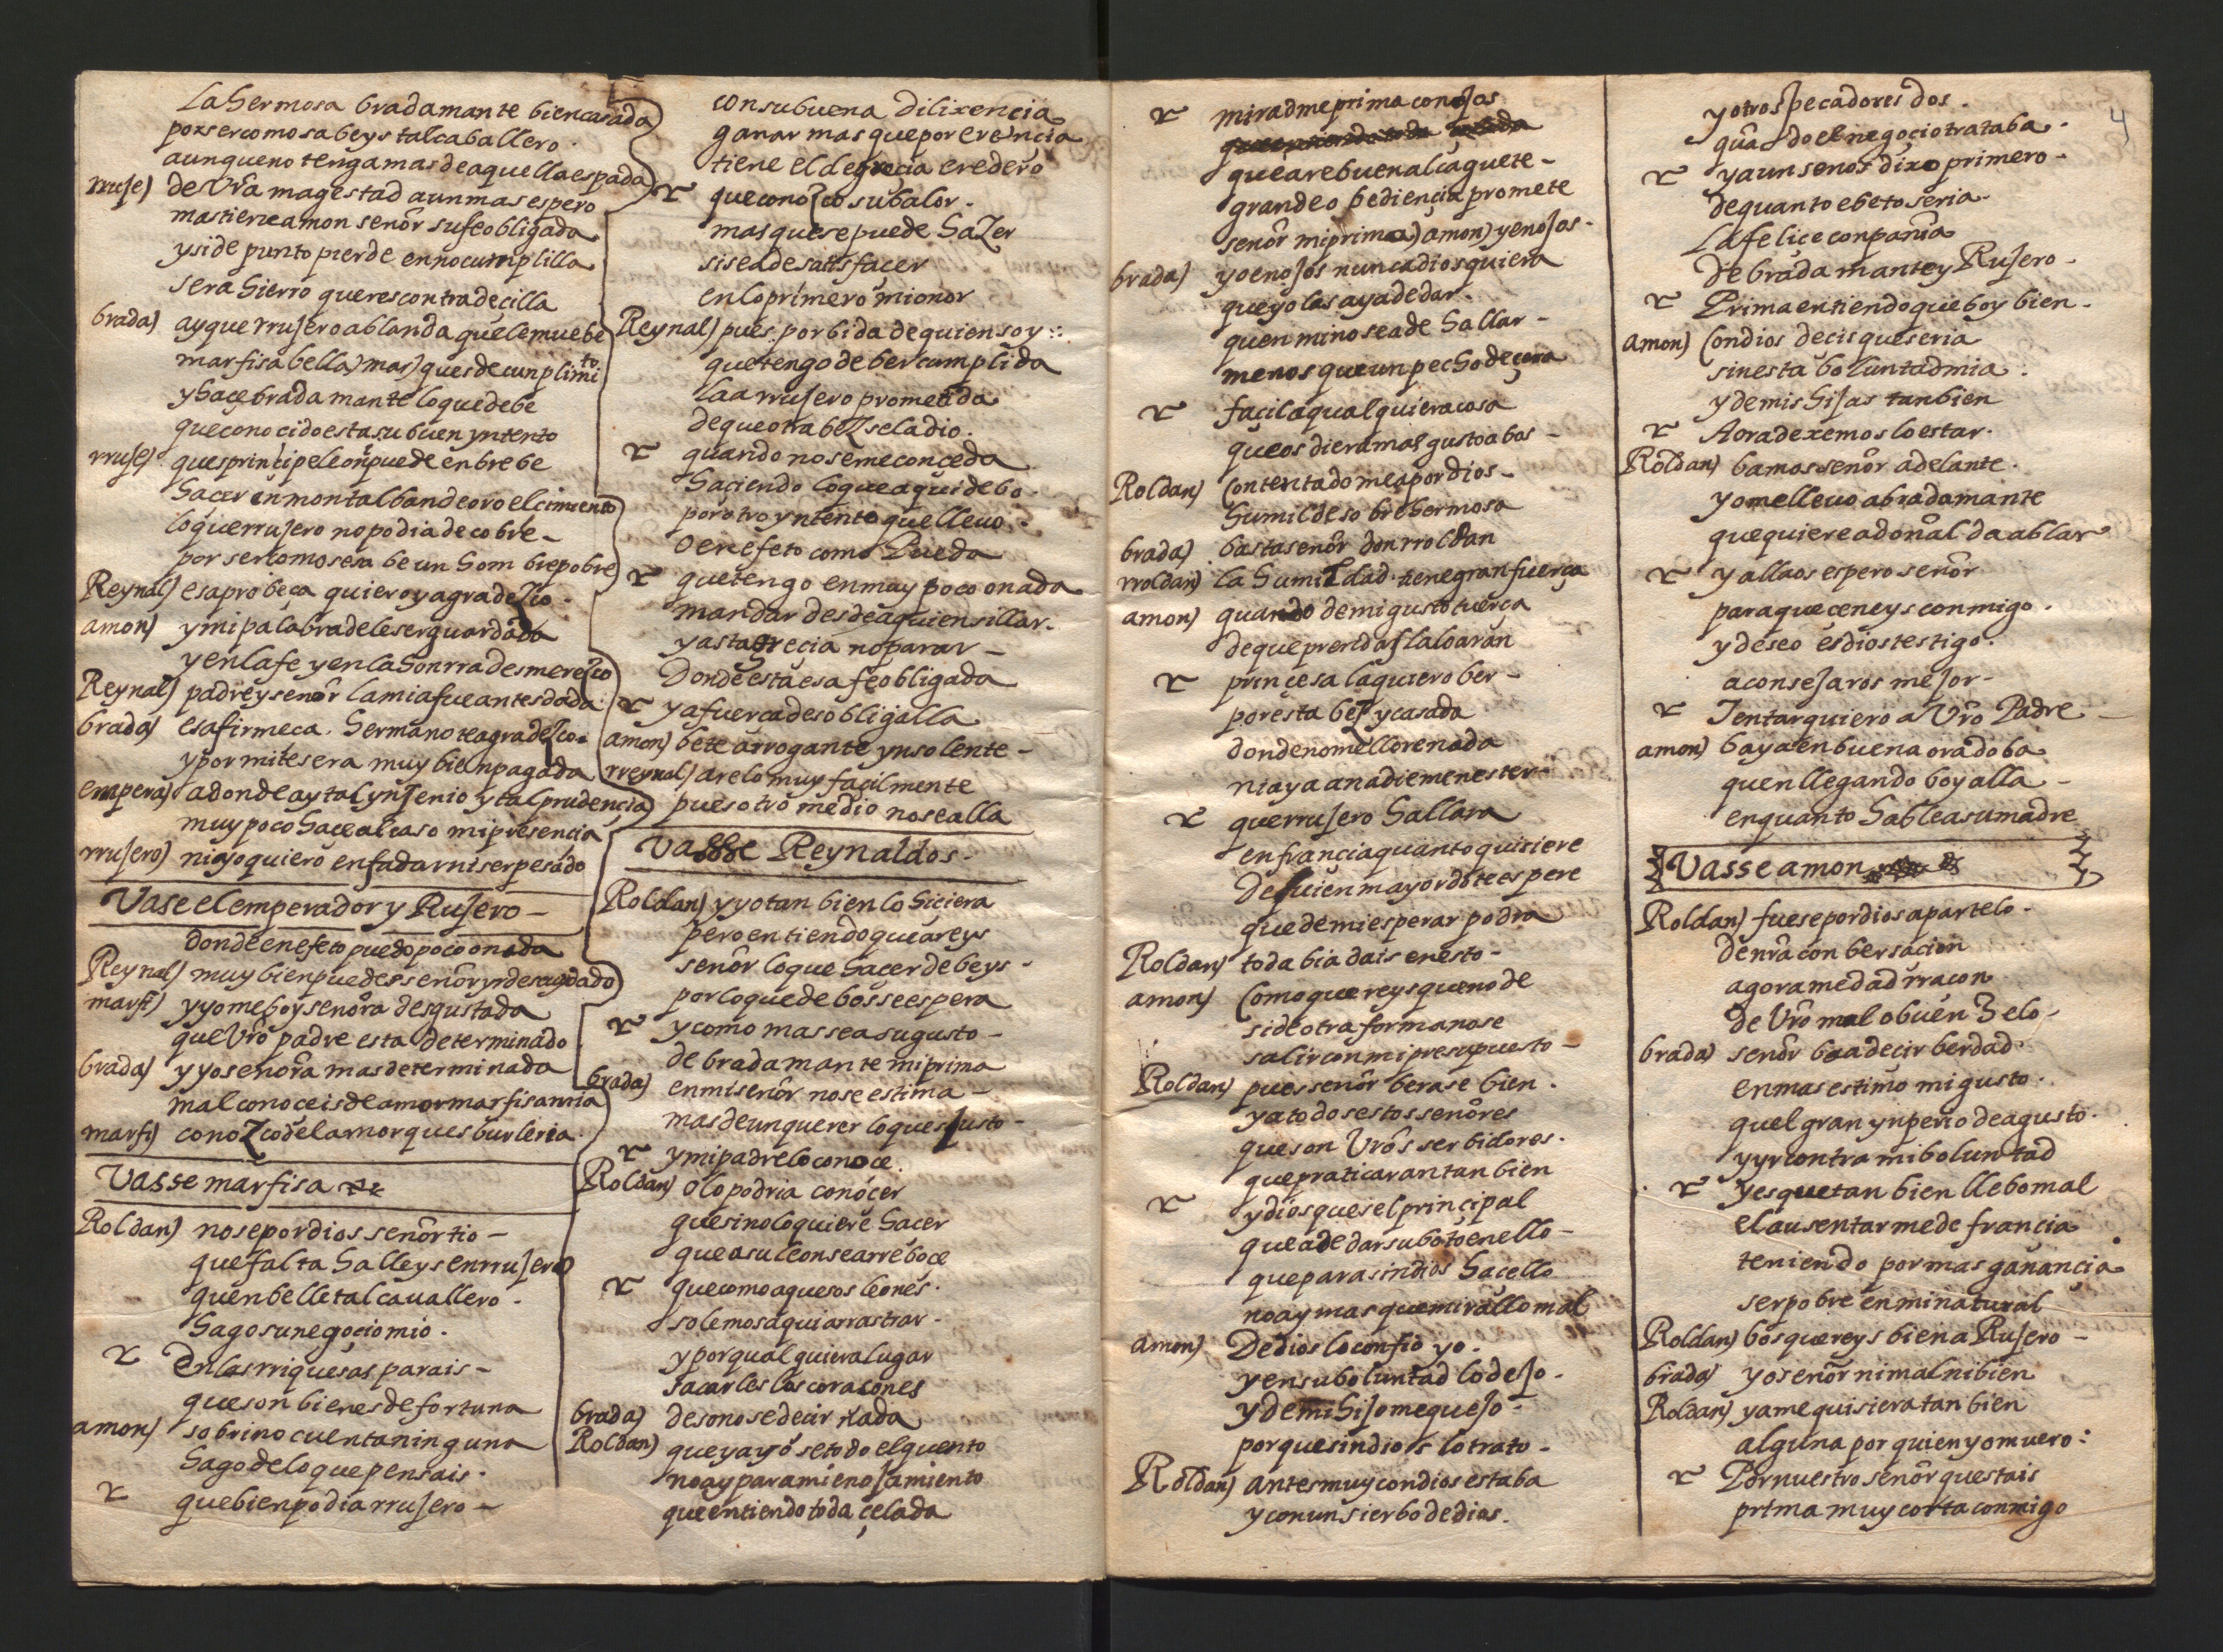 La hermosa bradamante bien casada
por ser como sabeys tal caballero.
aunque no tenga mas de aquella espada
rruje) de Vra magestad aun mas espero
mas tiene amon señor su fe obligada
y si de punto pierde en no cumplilla
sera hierro queres contradecilla
brada) ay que rrujero ablanda que le muebe
marfisa bella) mas) ques de cunplimito
y hace bradamante lo que debe
que conocido esta su buen yntento
rruje) ques principe leon puede en brebe
hacer en montalban de oro el cimiento
lo que rrujero no podia de cobre -
por ser como se sabe un hombre pobre
Reynal) esa probeça quiero y agradezco.
amon) y mi palabra dele ser guardada
y en la fe y en la honrra desmerezco
Reynal) padre y señor la mia fue antes dada
brada) esa firmeça. hermano te agradezco.
y por mi te sera muy bien pagada
empera) adonde ay tal ynjenio y tal prudençia
muy poco hace al caso mi presencia
rrujero) ni yo quiero enfadar ni ser pesado
Vase el emperador y Rujero -
donde en efeto puedo poco o nada
Reynal) muy bien puedes señor yr desagdado
marfi) y yo me boy señora desgustada
que Vro padre esta determinado
brada) y yo señora mas determinada
mal conoceis de amor marfisa mia
marfi) conozco del amor ques burleria.
Vasse marfisa
Roldan) no se por dios señor tio -
que falta halleys en rrujero
quen belle tal cauallero.
hago su negocio mio.
r En las rriquesas parais -
que son bienes de fortuna
amon) sobrino cuenta ninguna
hago de lo que pensais.
r que bien podia rrujero -
con su buena dilixencia
ganar mas que por erencia
tiene el de grecia eredero
r que conozco su balor.
mas que se puede hazer
si se a de satisfacer
en lo primero mi onor
Reynal) pues. por bida de quien soy
que tengo de ber cumplida
la a rrujero prometida
de que otra bez se la dio.
r quando no se me conceda
haciendo lo que aqui debo.
por otro yntento que lleuo.
o en efeto como Pueda
r que tengo en muy poco o nada
mandar desde aqui ensillar.
y asta grecia no parar -
Donde esta esa fe obligada
r y a fuerca deso bligalla
amon) bete arrogante ynsolente -
rreynal) arelo muy facilmente
pues otro medio no se alla
Vasse Reynaldos.
Roldan) y yo tan bien lo hiciera
pero entiendo que areys
señor lo que hacer debeys -
por lo que de bos se espera
r y como mas sea su gusto -
de bradamante mi prima
brada) en mi señor no se estima -
mas de un querer lo ques justo -
r y mi padre lo conoce.
Roldan) o lo podria conoçer
que si no lo quiere hacer
que a su leon se arreboce
r que como aquesos leones.
solemos aqui arrastrar.
y por qual quiera lugar
sacarles los coracones
brada) deso no se decir nada
Roldan) que ya yo se todo el quento
no ay para mi enojamiento
que entiendo toda çelada
r miradme prima con ojos
que entiendo toda celada
que are buen alcaguete -
grande o bediencia promete
señor mi prima) amon) y enojos -
brada) yo enojos nunca dios quiera
que yo los aya de dar.
quen mi no se a de hallar -
menos que un pecho de çera
r facil a qual quiera cosa
que os diera mas gusto a bos -
Roldan) contentado me a por dios -
humilde sobre hermosa
brada) basta señor don rroldan
rroldan) la humildad tiene gran fuerça
amon) quando de mi gusto tuerça
de que prendas la loaran
r princesa la quiero ber -
por esta bez y casada
donde no me llore nada
ni aya a nadie menester -
r que rrujero hallara
en francia quanto quisiere
De quien mayor dote espere
que de mi esperar podra
Roldan) toda bia dais en esto -
amon) Como quereys que no de
si de otra forma no se
salir con mi presupuesto -
Roldan) pues señor berase bien.
ya todos estos señores
que son Vros serbidores.
que praticaran tan bien
r y dios ques el principal
que a de dar su boto en ello -
que para sin dios hacello
no ay mas que mirallo mal
amon) De dios lo confio yo.
y en su boluntad lo dejo.
y de mi hijo me quejo -
porque sin dios lo trato -
Roldan) antes muy con dios estaba
y con un sierbo de dios.
4
y otros pecadores dos.
quãdo el negocio trataba.
r y aun señor dixo primero -
de quanto ebeto seria.
La felice conpañia
de bradamante y Rujero -
r Prima entiendo que boy bien.
amon) Con dios decis que seria
sin esta boluntad mia.
y de mis hijas tanbien
r Aora dexemos lo estar.
Roldan) bamos señor adelante.
yo me lleuo a bradamante
que quiere a doñ alda ablar
r y alla os espero señor
para que ceneys conmigo.
y deseo es dios testigo.
aconsejaros mejor -
r Tentar quiero a Vro Padre -
amon) baya en buena ora do ba
quen llegando boy alla -
en quanto hable a su madre
Vasse amon
Roldan) fuese por dios apartelo -
de nra conbersacion
agora me dad rracon
de Vro mal o buen zelo -
brada) señor boa decir berdad
en mas estimo mi gusto.
quel gran ynperio de agusto.
y yr contra mi boluntad
r y es que tan bien llebo mal
el ausentarme de francia
teniendo por mas ganançia
ser pobre en mi natural
Roldan) bos quereys bien a Rujero -
brada) yo señor ni mal ni bien
Roldan) ya me quisiera tan bien
alguna por quien yo muero:
r Por nuestro señor questais
prima muy corta conmigo